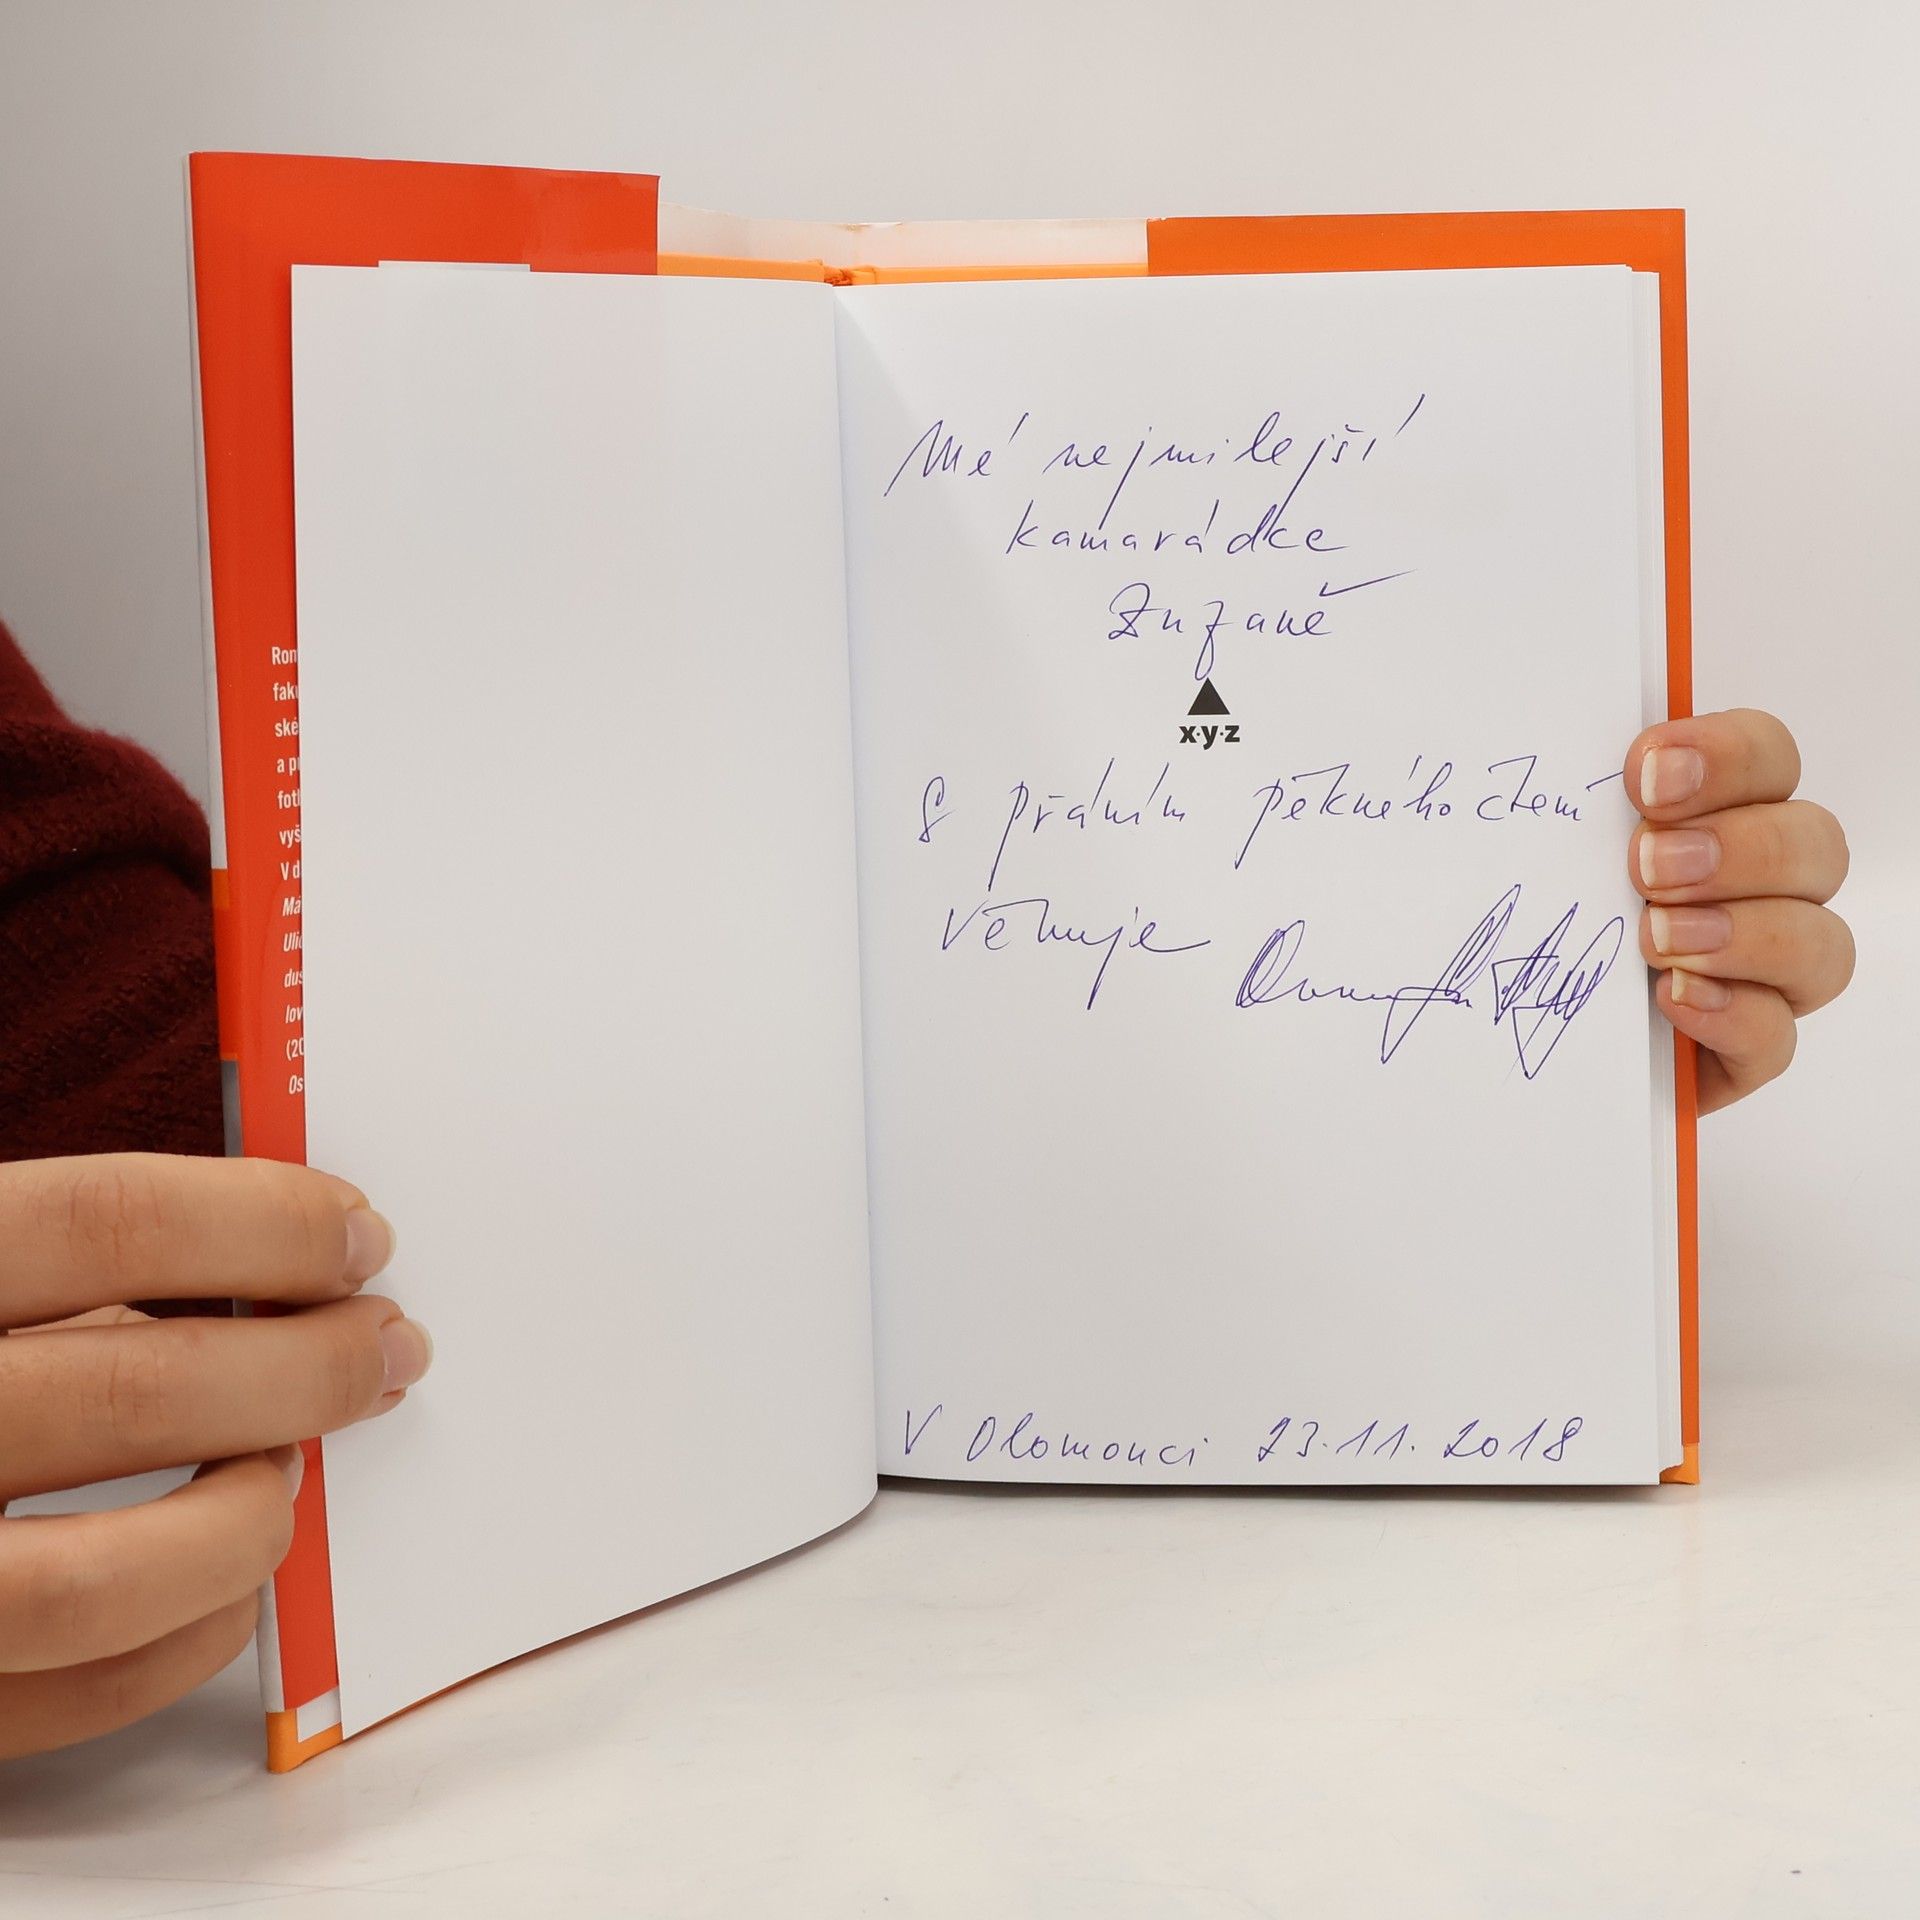 Ron
fak
ské
a p
fot
vyš
V d
Má
Uli
dus
lov
(20
Os
Mé nejmilejší
kamarádce
Zuzaně
x·y·z
S přáním pěkného čtení
věnuje
V Olomouci 23.11.2018